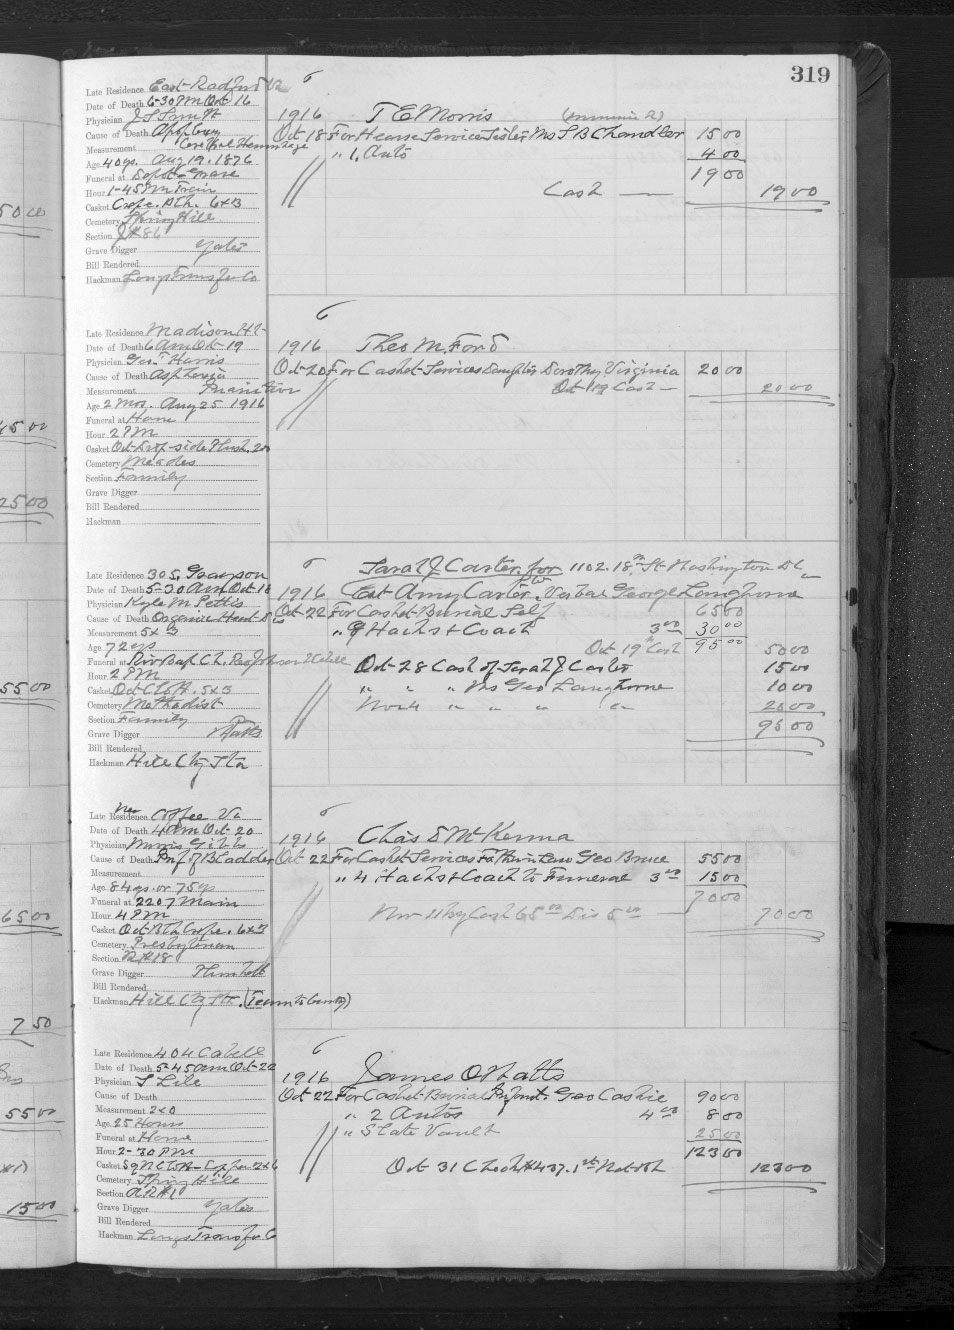 319
Late Residence East Radford Va
Date of Death 6-30 PM Oct 16
Physician
Cause of Death Apoplexy
Measurement Cerebral Hemorrhage
Age 40 ys. Aug 19. 1876
Funeral at Depot - Grave
Hour 1-45 PM Train
Casket Crepe. 6x3
Cemetery Spring Hill
Section
Grave Digger Yates
Bill Rendered
Hackman Longs Transfer Co
1916 T E Morris
Oct 18 For Hearse Service Sister Mrs S B Chandler 15 00
" 1 Auto 4 00
19 00
Cash 19 00
Late Residence Madison Ht
Date of Death 6 AM Oct 19
Physician Geo. Harris
Cause of Death
Measurement Inanition
Age 2 Mos. Aug 25 1916
Funeral at Home
Hour 2 PM
Casket Oct Drop-side Plush. 20
Cemetery Meades
Section Family
Grave Digger
Bill Rendered
Hackman
1916 Theo M. Ford
Oct 20 For Casket Services Daughter Dorothy Virginia 20 00
Oct 19 Cash 20 00
Late Residence 305. Grayson
Date of Death 5-30 AM Oct 18
Physician Kyle M Pettis
Cause of Death Organic Heart Dis
Measurement 5x3
Age 72 ys
Funeral at Riv Bap Ch.
Hour 2 PM
Casket Oct 5x3
Cemetery Methodist
Section Family
Grave Digger
Bill Rendered
Hackman Hill City Sta
Sarah J Carter for 1102. 18th St Washington D C
1916 Est Amy Carter. Verbal George Langhorne
Oct 22 For Casket Burial Self 65 00
" 9 Hacks & Coach 3 00 30 00
Oct 19th Cash 95 00 50 00
Oct 28 Cash of Sarah J Carter 15 00
" " " Mrs Geo Langhorne 10 00
Nov 4 " " " " 20 00
95 00
Late Residence Near Coffee Va
Date of Death 4 PM Oct 20
Physician Morris Gibbs
Cause of Death Inf of Bladder
Measurement
Age 84 ys. or 75 ys
Funeral at 2207 Main
Hour 4 PM
Casket Oct Crepe. 6x3
Cemetery Presbyterian
Section
Grave Digger
Bill Rendered
Hackman Hill City Sta. (Team to County)
1916 Chas D McKenna
Oct 22 For Casket Services Father in Law Geo Bruce 55 00
" 4 Hacks & Coach to Funeral 3 00 15 00
70 00
Nov 11 By Cash 65 00 Dis 5 00 70 00
Late Residence 404 Cabell
Date of Death 5-45 AM Oct 22
Physician Lile
Cause of Death
Measurement 2x0
Age 25 Hours
Funeral at Home
Hour 2-30 PM
Casket
Cemetery Spring Hill
Section
Grave Digger Yates
Bill Rendered
Hackman Longs Transfer Co
1916 James O Watts
Oct 22 For Casket Burial Infant Geo Caskie 90 00
" 2 Autos 4 00 8 00
" Slate Vault 25 00
123 00
Oct 31 Check #437. 1st Nat Bk 123 00